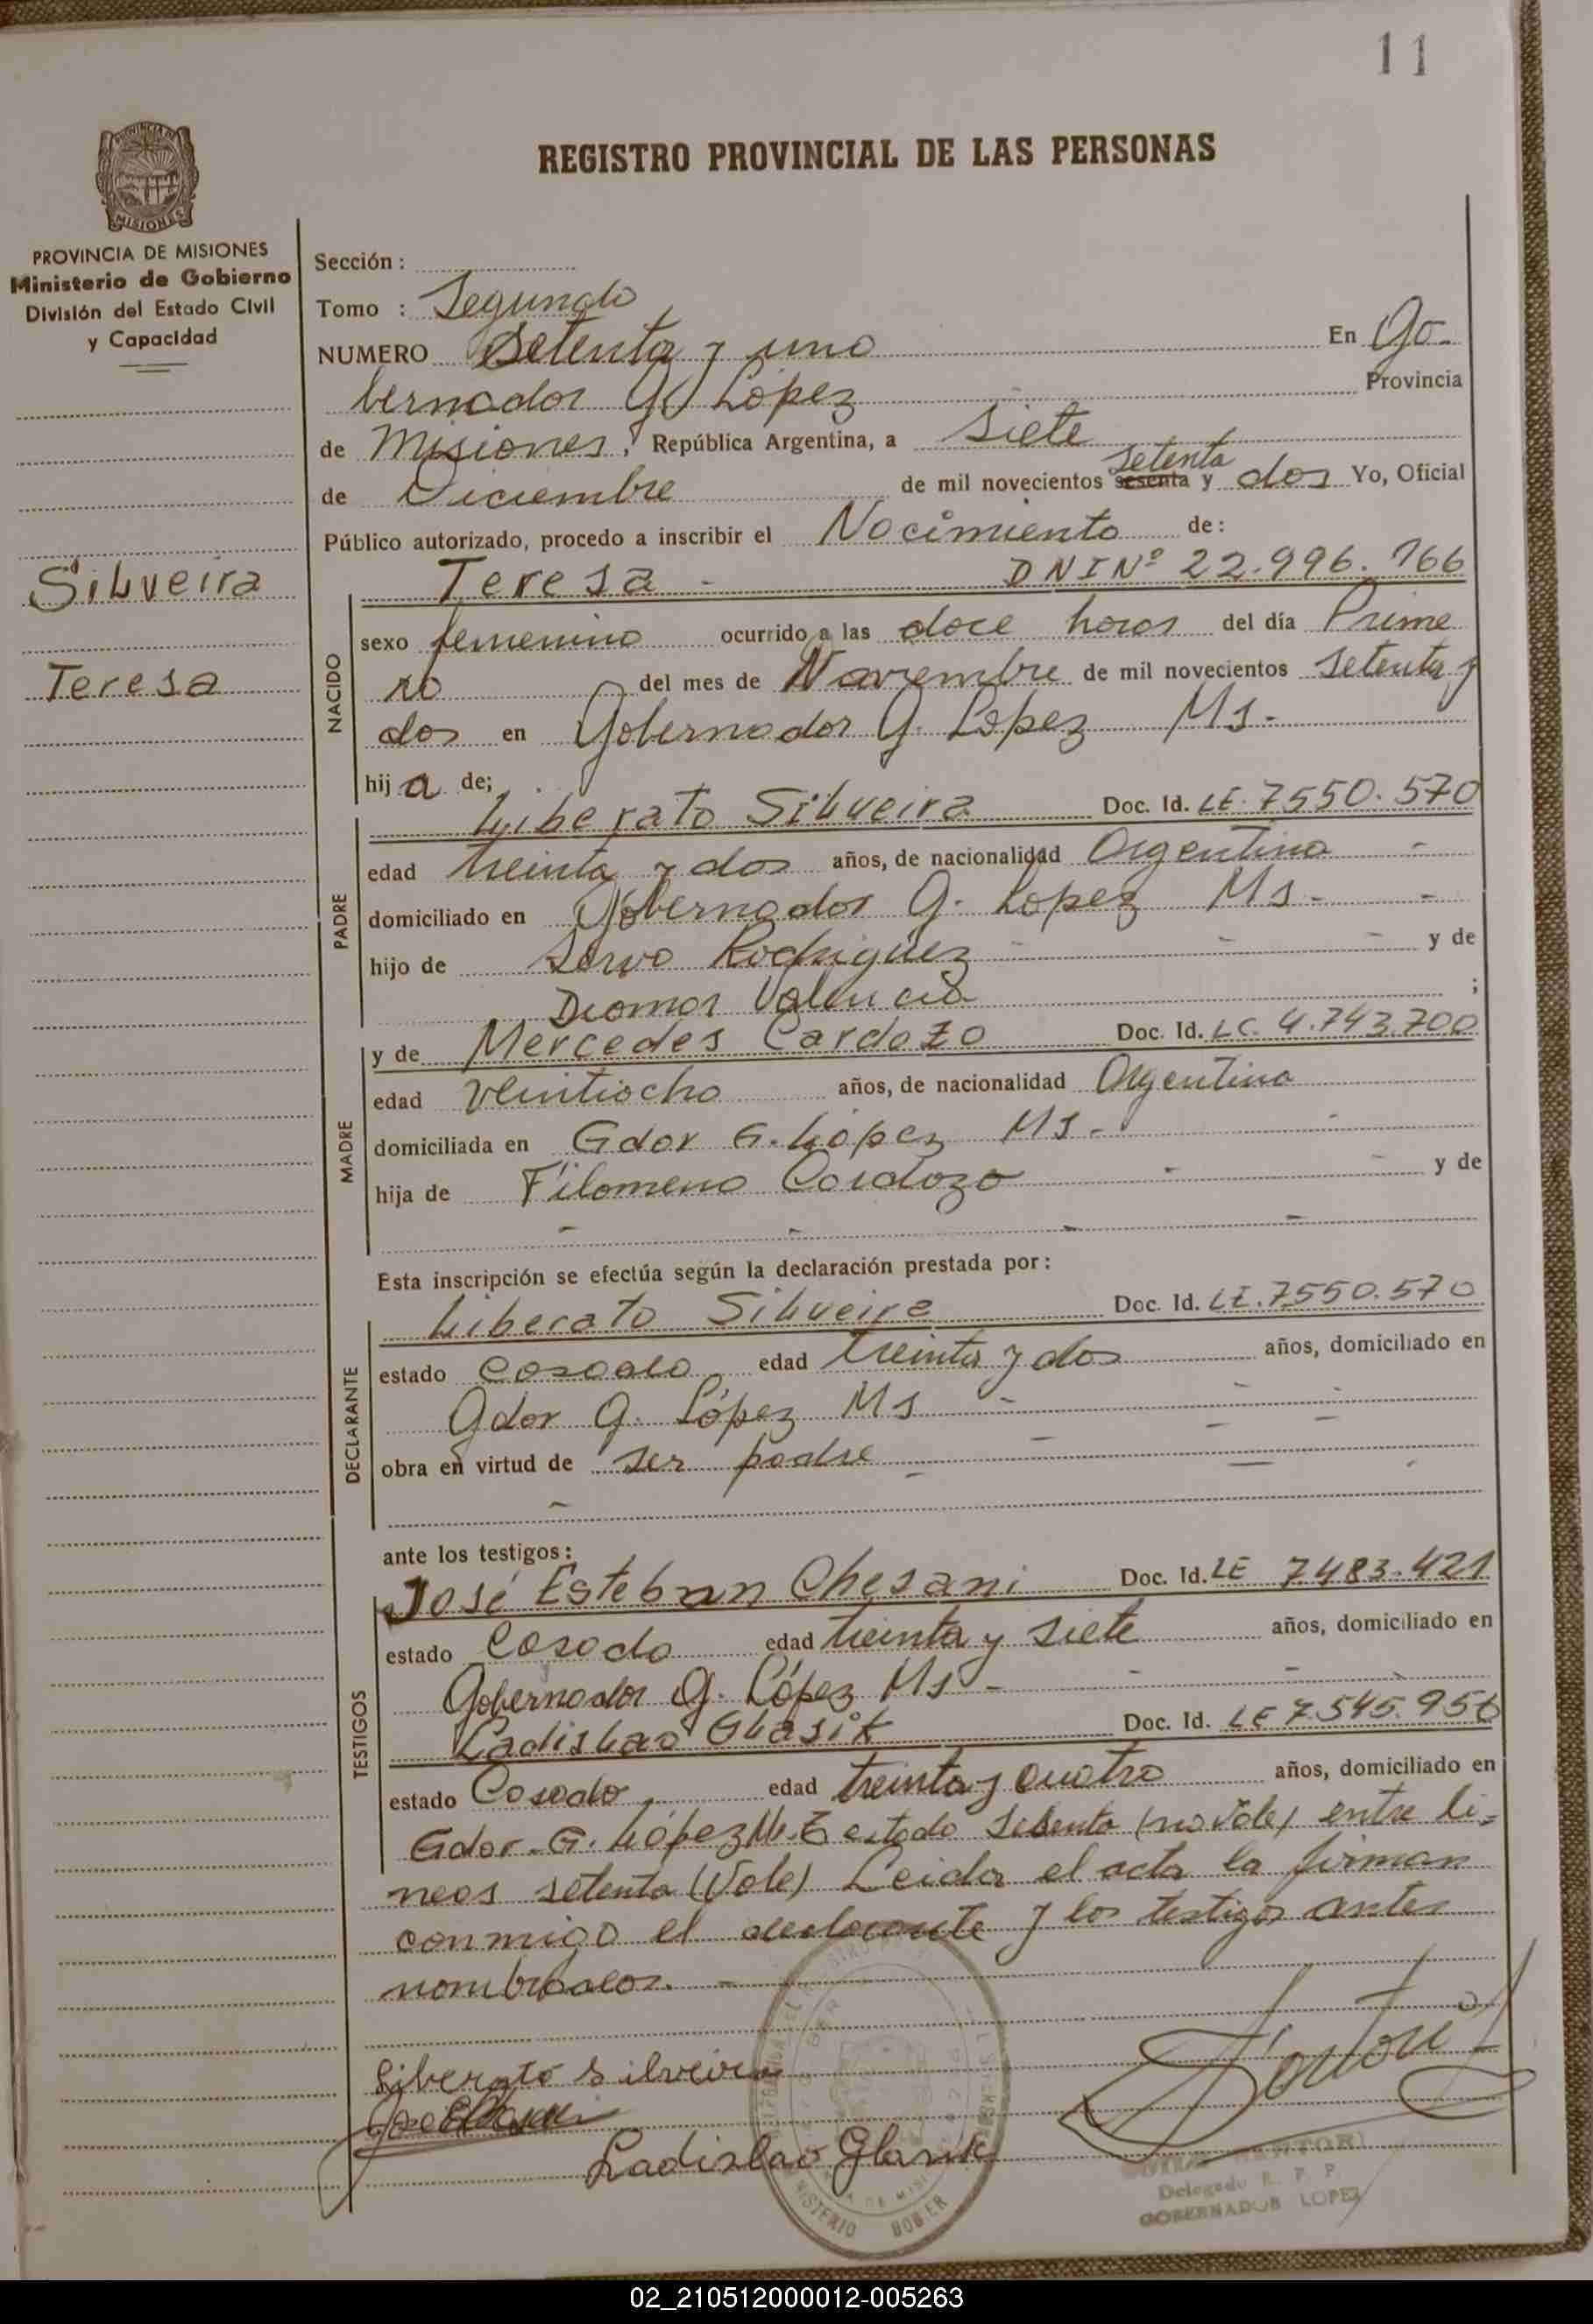 11
REGISTRO PROVINCIAL DE LAS PERSONAS
PROVINCIA DE MISIONES
MISIONES
PROVINCIA DE MISIONES
Ministerio de Gobierno
División del Estado Civil
y Capacidad
Silveira
Teresa
Sección :
Tomo : Segundo
NUMERO Setenta y uno En Go-
bernador G. López Provincia
de Misiones, República Argentina, a siete
setenta
de Diciembre de mil novecientos sesenta y dos Yo, Oficial
Público autorizado, procedo a inscribir el Nacimiento de:
NACIDO
Teresa - DNI Nº 22.996.166
sexo femenino ocurrido a las doce horas del día Prime
ro del mes de Noviembre de mil novecientos setenta y
dos en Gobernador G. López Ms.-
hija de;
PADRE
Liberato Silveira Doc. Id. LE. 7550.570
edad treinta y dos años, de nacionalidad Argentina -
domiciliado en Gobernador G. López Ms. - -
hijo de Servo Rodriguez - - - y de
Valencia ;
MADRE
y de Mercedes Cardozo Doc. Id. LC. 4.743.700
edad veintiocho años, de nacionalidad Argentina
domiciliada en Gdor G. López Ms.-
hija de Filomeno Cardozo - - y de
- - - -
Esta inscripción se efectúa según la declaración prestada por:
DECLARANTE
Liberato Silveira Doc. Id. LE. 7550.570
estado casado edad treinta y dos años, domiciliado en
Gdor G. López Ms - - -
obra en virtud de ser padre
ante los testigos:
TESTIGOS
José Esteban Chesani Doc. Id. LE 7.483.421
estado casado edad treinta y siete años, domiciliado en
Gobernador G. López Ms -
Ladislao Glasik Doc. Id. LE 7.545.956
estado Casado edad treinta y cuatro años, domiciliado en
Gdor. G. López Ms. testado sesenta (no vale) entre li-
neas setenta (Vale) Leida el acta la firman
conmigo el declarante y los testigos antes
nombrados. -
Liberato Silveira
Ladislao Glasik
Delegado R. P. P.
GOBERNADOR LOPEZ
02_210512000012-005263